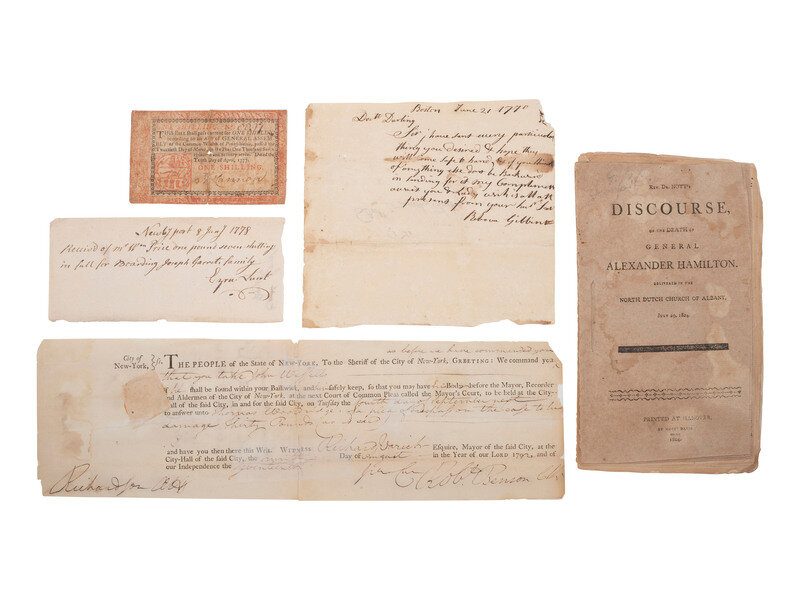 ONE SHILLING.
THIS Bill shall pass current for ONE SHILLING,
according to an Act of GENERAL ASSEM-
BLY of the Common Wealth of Pennsylvania, passed the
Twentieth Day of March, in the Year One Thousand Seven
Hundred and seventy-seven. Dated the
Tenth Day of April, 1777.
ONE SHILLING.
Newbyport 8 1778
Received of Mr Wm Price one pound seven shilling
in full for Boarding Joseph Garret family
Ezra Lunt
Boston June 21 1770
Doctr Darling
Sir I have sent every particular
thing you desired & hope they
will come safe to hand & if you think
of anything else dont be backward
in sending for it my Compliments
your Lady
from your
Gibbins
REV. DR. NOTT'S
DISCOURSE,
ON THE DEATH OF
GENERAL
ALEXANDER HAMILTON.
DELIVERED IN THE
NORTH DUTCH CHURCH OF ALBANY,
JULY 29, 1804.
PRINTED AT HANOVER,
BY MOSES DAVIS
1804.
as before we have commanded you
City of New-York, ss. THE PEOPLE of the State of NEW-YORK, To the Sheriff of the City of New-York, GREETING: We command you
that you take John
if he shall be found within your Bailiwick, and safely keep, so that you may have Body before the Mayor, Recorder
and Aldermen of the City of New-York, at the next Court of Common Pleas called the Mayor's Court, to be held at the City-
Hall of the said City, in and for the said City, on Tuesday the fourth day of September next
to answer unto Thomas of a plea of trespass on the case to his
damage thirty Pounds as is said
and have you then there this Writ. WITNESS Richard Varick Esquire, Mayor of the said City, at the
City-Hall of the said City, the Day of August in the Year of our LORD 1792, and of
our Independence the seventeenth
Richardson Atty Robt. Benson Clk